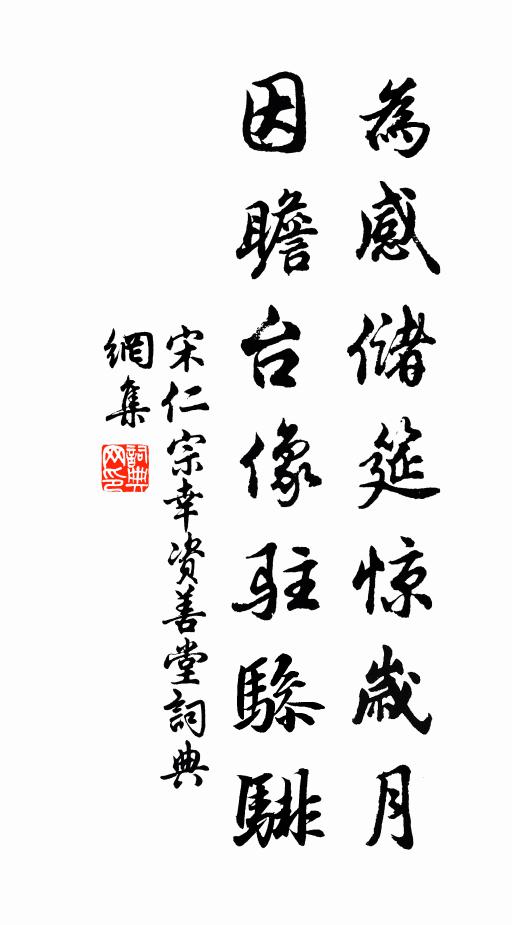 為感儲筵惊歲月
因瞻台像駐驂騑
宋仁宗幸资善堂詞典
網集
詞典
网印